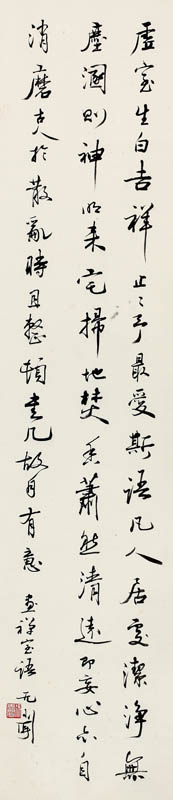 虛室生白吉祥止止予最愛斯語凡人居處潔淨無
塵溷則神明來宅掃地焚香蕭然清遠即妄心亦自
消磨古人於散亂時且整頓書几故自有意 畫禪室語 元聞